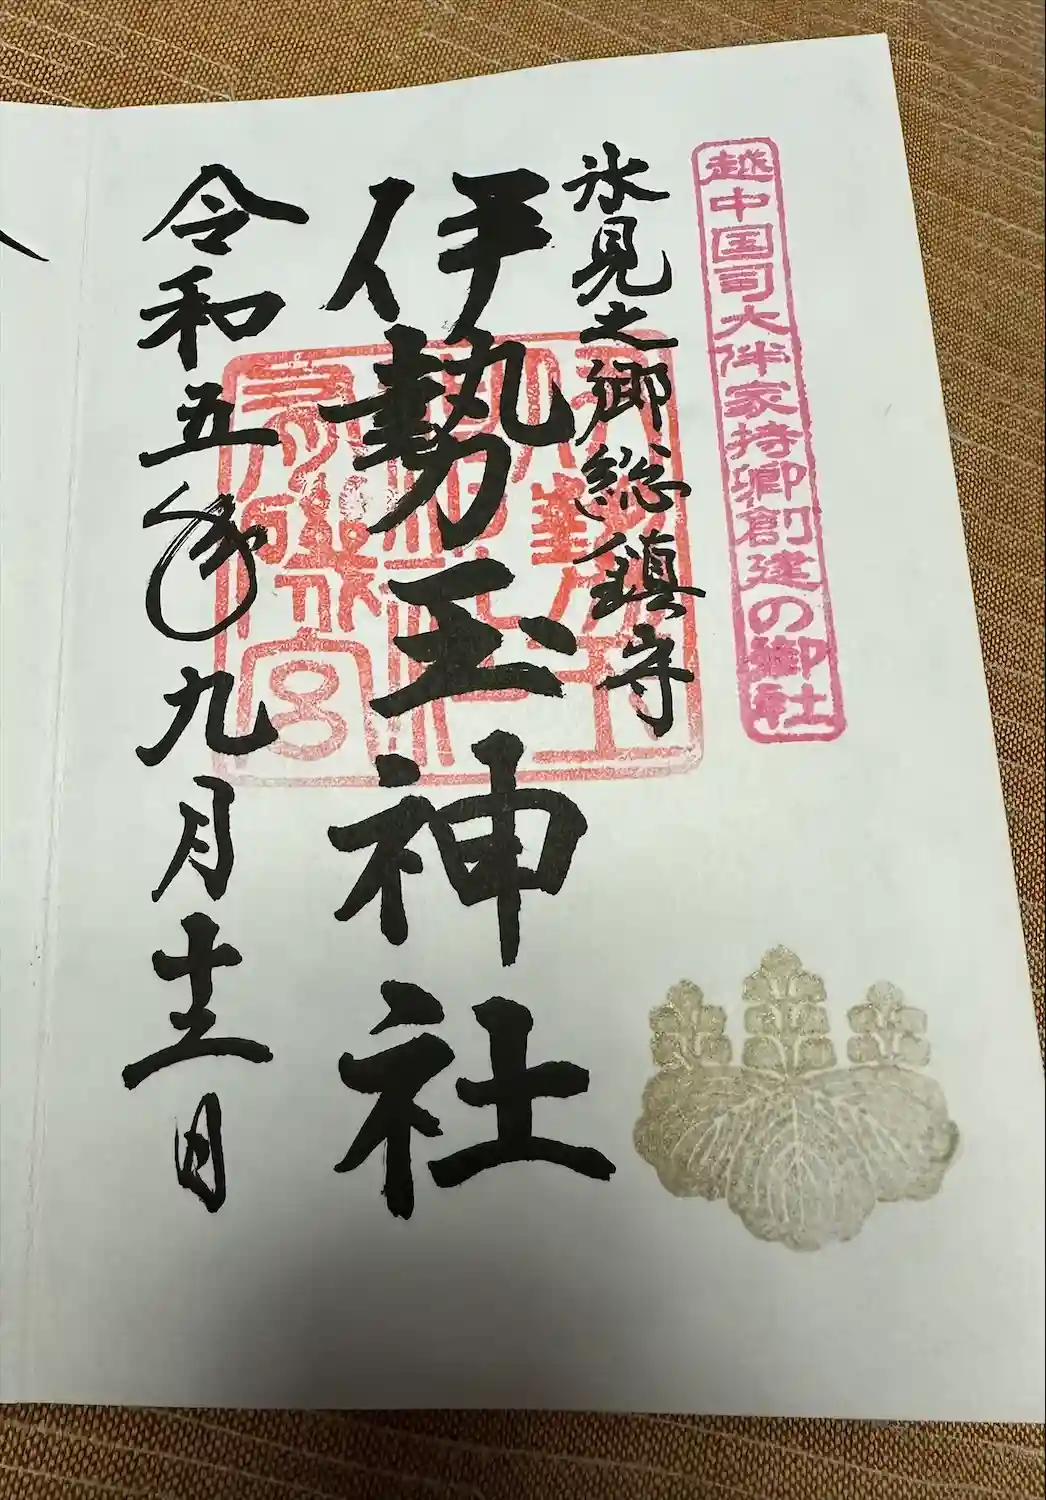 越中国司大伴家持卿創建の御社
氷見之御総鎮守
伊勢玉神社
令和五年九月十二日